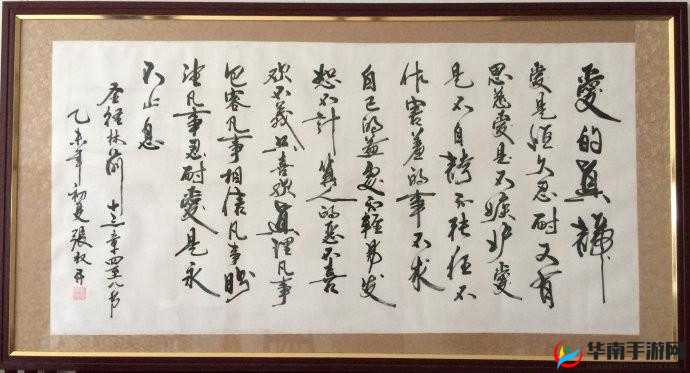 愛的真諦
愛是恒久忍耐又有
恩慈愛是不嫉妒愛
是不自誇不張狂不
作害羞的事不求
自己的益處不輕易發
怒不計算人的惡不喜
歡不義只喜歡真理凡事
包容凡事相信凡事盼
望凡事忍耐愛是永
不止息
圣經林前十三章四至八节
乙未年初夏張
华南手游网